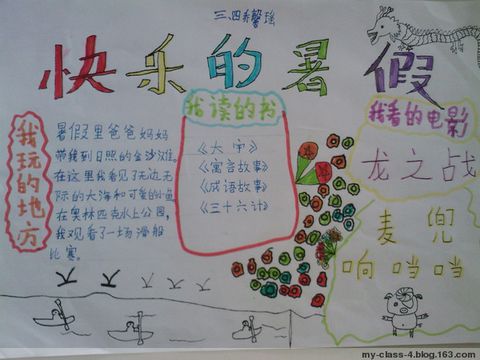 三.四
快乐的暑假
我玩的地方
暑假里爸爸妈妈
带我到日照的金沙滩。
在这里我看见了无边无
际的大海和可爱的小鱼
在奥林匹克水上公园,
我观看了一场滑船
比赛。
我读的书
《寓言故事》
《成语故事》
《三十六计》
我看的电影
龙之战
麦兜
响当当
my-class-4.blog.163.com